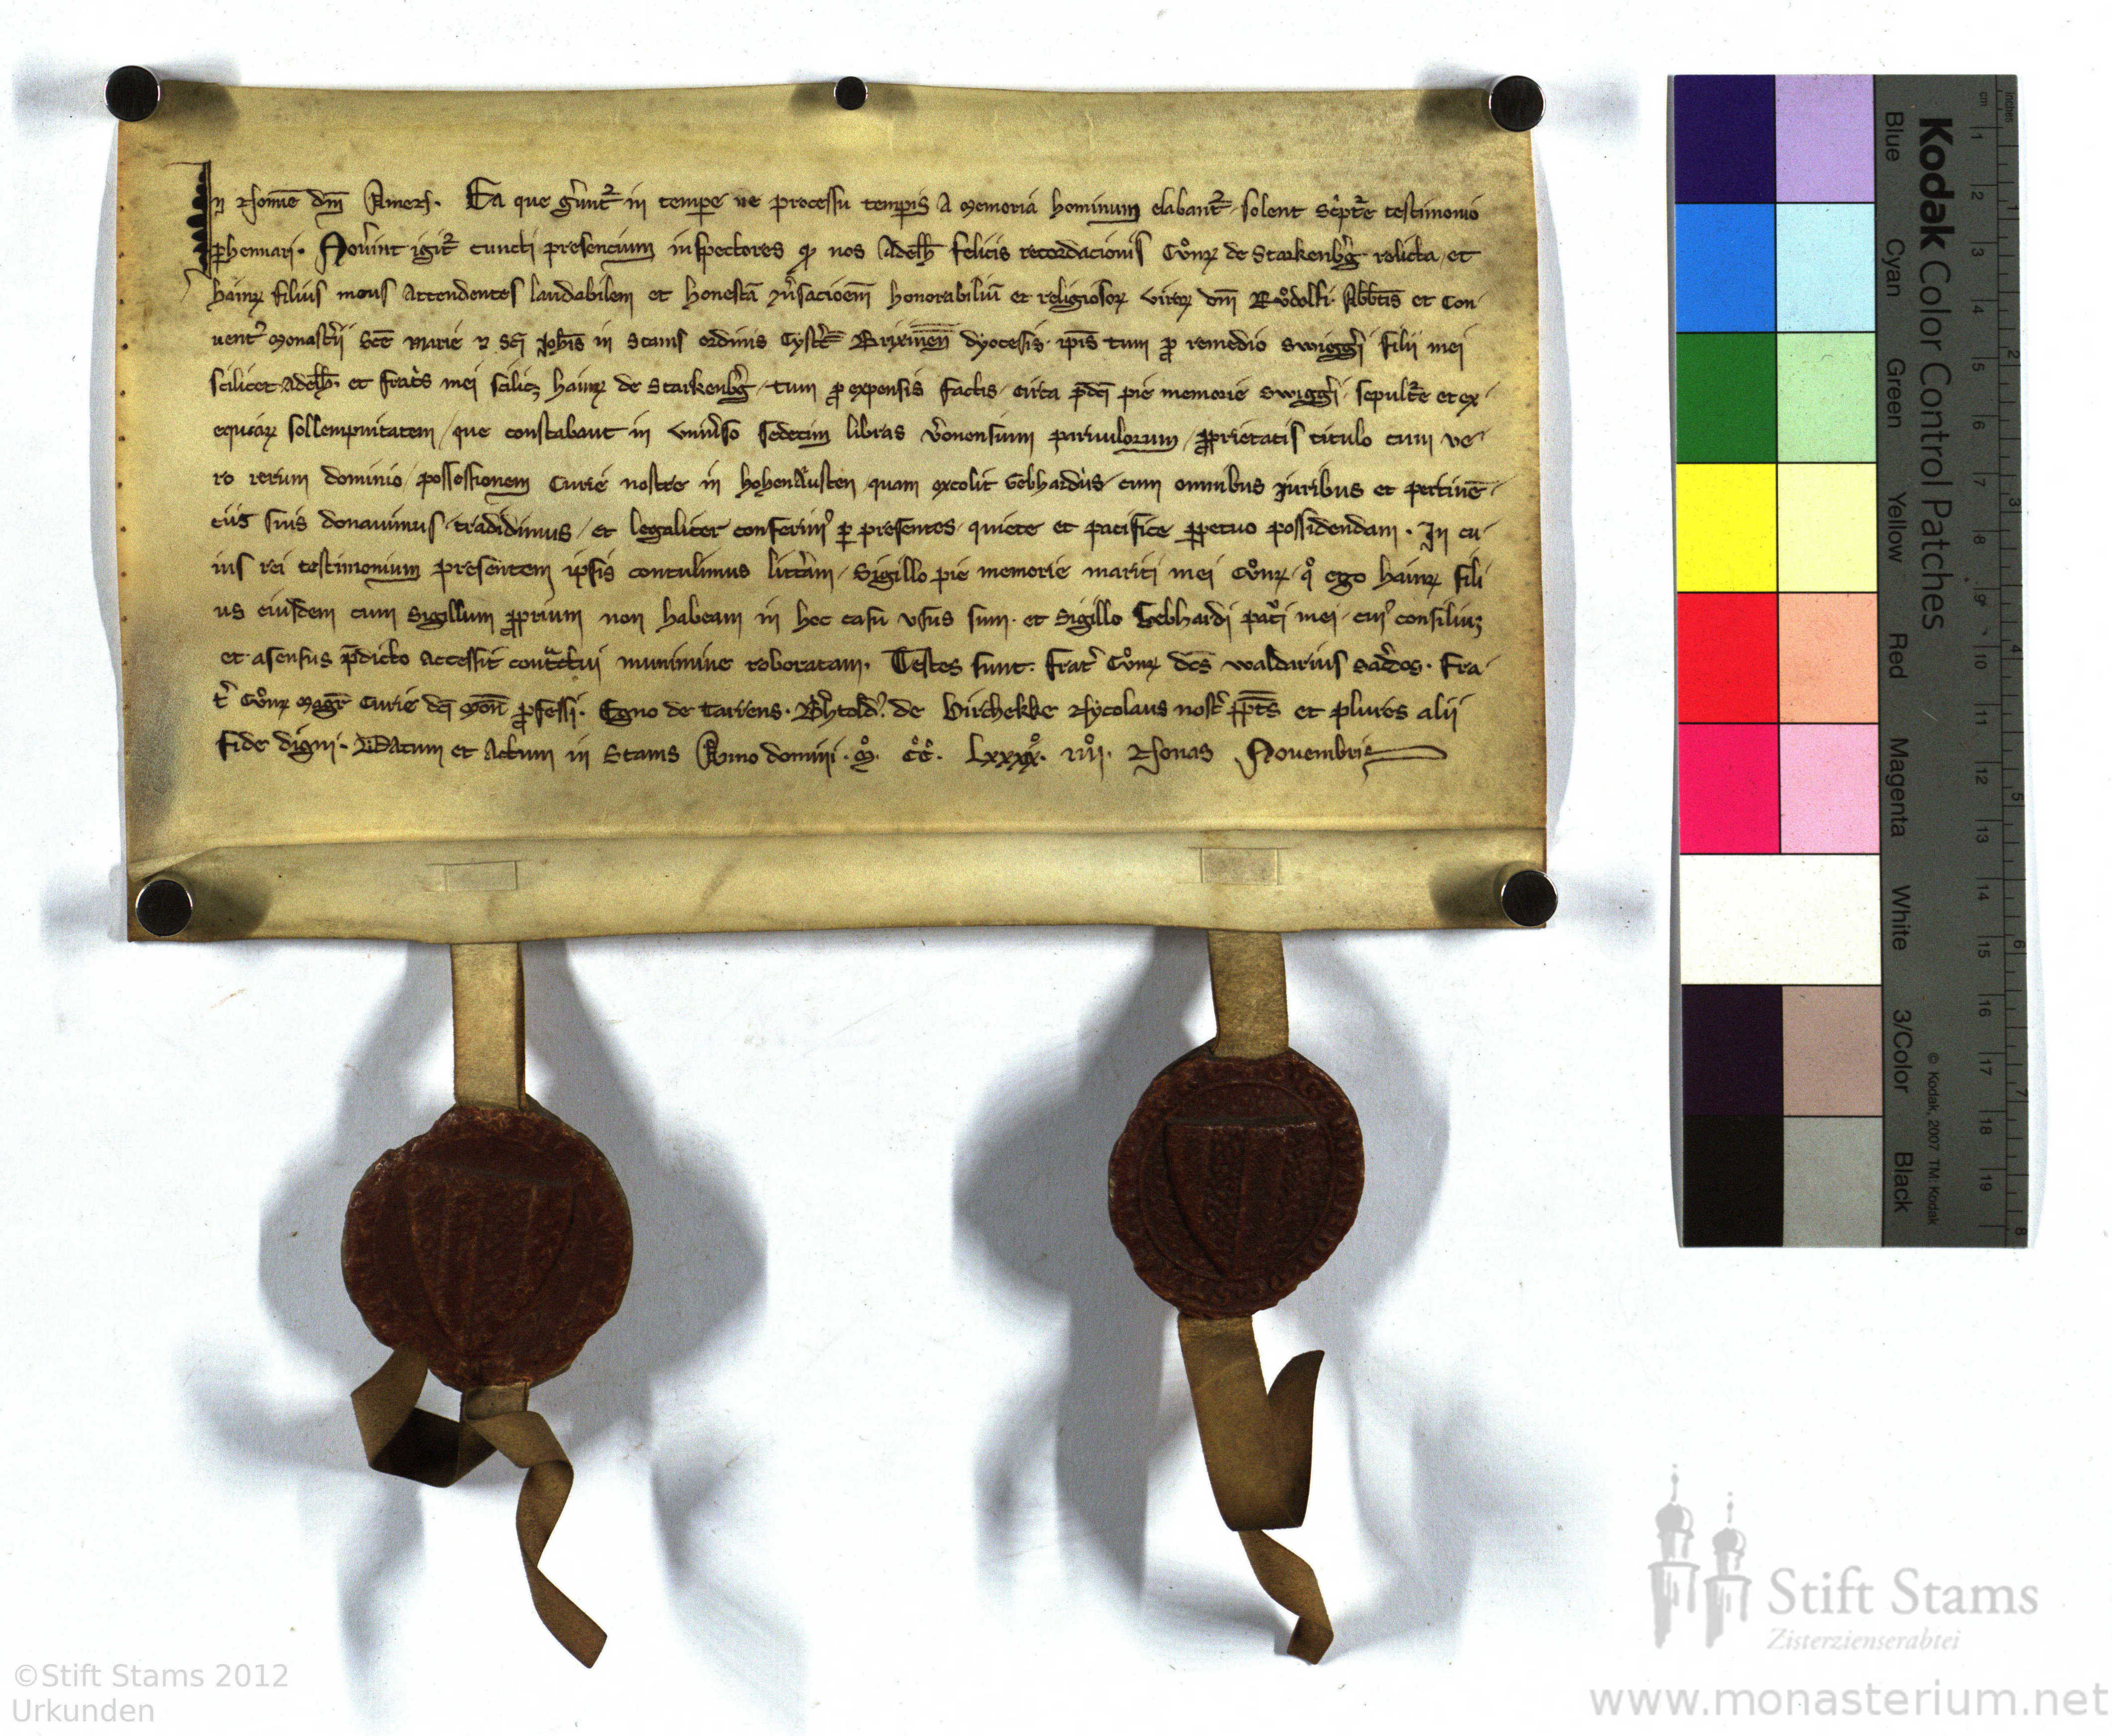 In Nomīe dn̄i Amen. Ea que gerunt᷑ in tempe ne processu tempis a memoria hominum elabant᷑ solent sc'ptr̄e testimonio
phennari. Nov'int igit᷑ cuncti presencium inspectores qđ nos Adelh̄ felicis recordacionis Cůnr̄ de Starkenb'g relicta et
hainr̄ filius meus attendentes laudabilem et honestā 9v'sacioēm honorabiliū et religiosor̄ viror̄ dn̄i Růdolfi Abb̄tis et Con
vent᷑ monast'ii sc̄e marie et sc̄i Joh̄is in Stams ordinis Cyst'c̄ Brixinen̄ dyocesis ip̄is tum p remedio Swigg'i filii mei
scilicet Adelh̄ et frat's mei scilicȝ hainr̄ de Starkenb'g tum p expensis factis circa p̄dc̄i pie memorie Swigg'i sepultr̄e et ex
equiar̄ sollempnitatem que constabant in univ'so sedecim libras v'onensium parvulorum pprietatis titulo cum ve
ro rerum dominio possessionem Curie nostre in hohenAusten quam excolit Gebhardus cum omnibus juribus et ptinē
ciis suis donavimus tradidimus et legaliter conferim9 p presentes quiete et pacifice ppetuo possidendam. In cu
ius rei testimonium presentem ipsis contulimus litt'am Sigillo pie memorie mariti mei Cůnr̄ qo ego hainr̄ fili
us eiusdem cum sigillum pprium non habeam in hoc casu usus sum et Sigillo Gebhardi pat'i mei cui9 consiliuȝ
et asensus p̄dicto accessit cont̄ctui munimine roboratam. Testes sunt. frat' Cůnr̄ dc̄s waldarius sac'dos. fra
t' Cůnr̄ magr̄ Curie dc̄i mon̄ pfessi. Egno de Tarrens. B'htold9. de Virchekke Nycolaus nost' pp̄ts et plures alii
fide digni. Datum et Actum in Stams Anno domini. M. CC. Lxxxx. IIII. Nonas Novembris
Kodak Color Control Patches
Blue Cyan Green Yellow Red Magenta White 3/Color Black
cm 1 2 3 5 6 7 8 9 10 11 12 13 14 15 16 17 18 19
inches 1 2 3 4 5 6 7 8
© Kodak, 2007 TM: Kodak
Stift Stams
Zisterzienserabtei
©Stift Stams 2012
Urkunden
www.monasterium.net